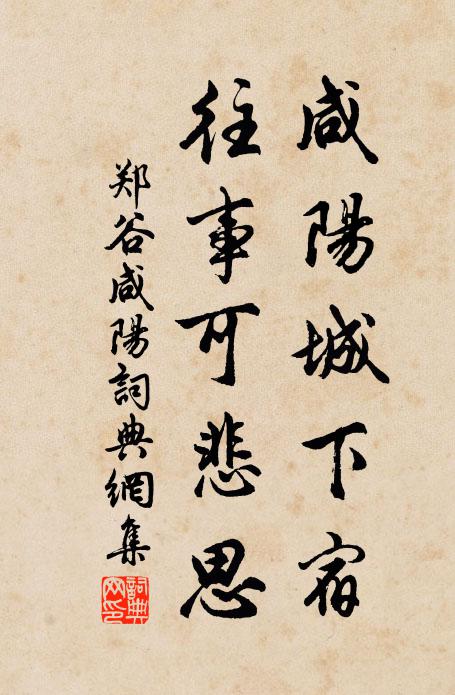 咸陽城下宿
往事可悲思
郑谷咸陽詞典網集
詞典網印